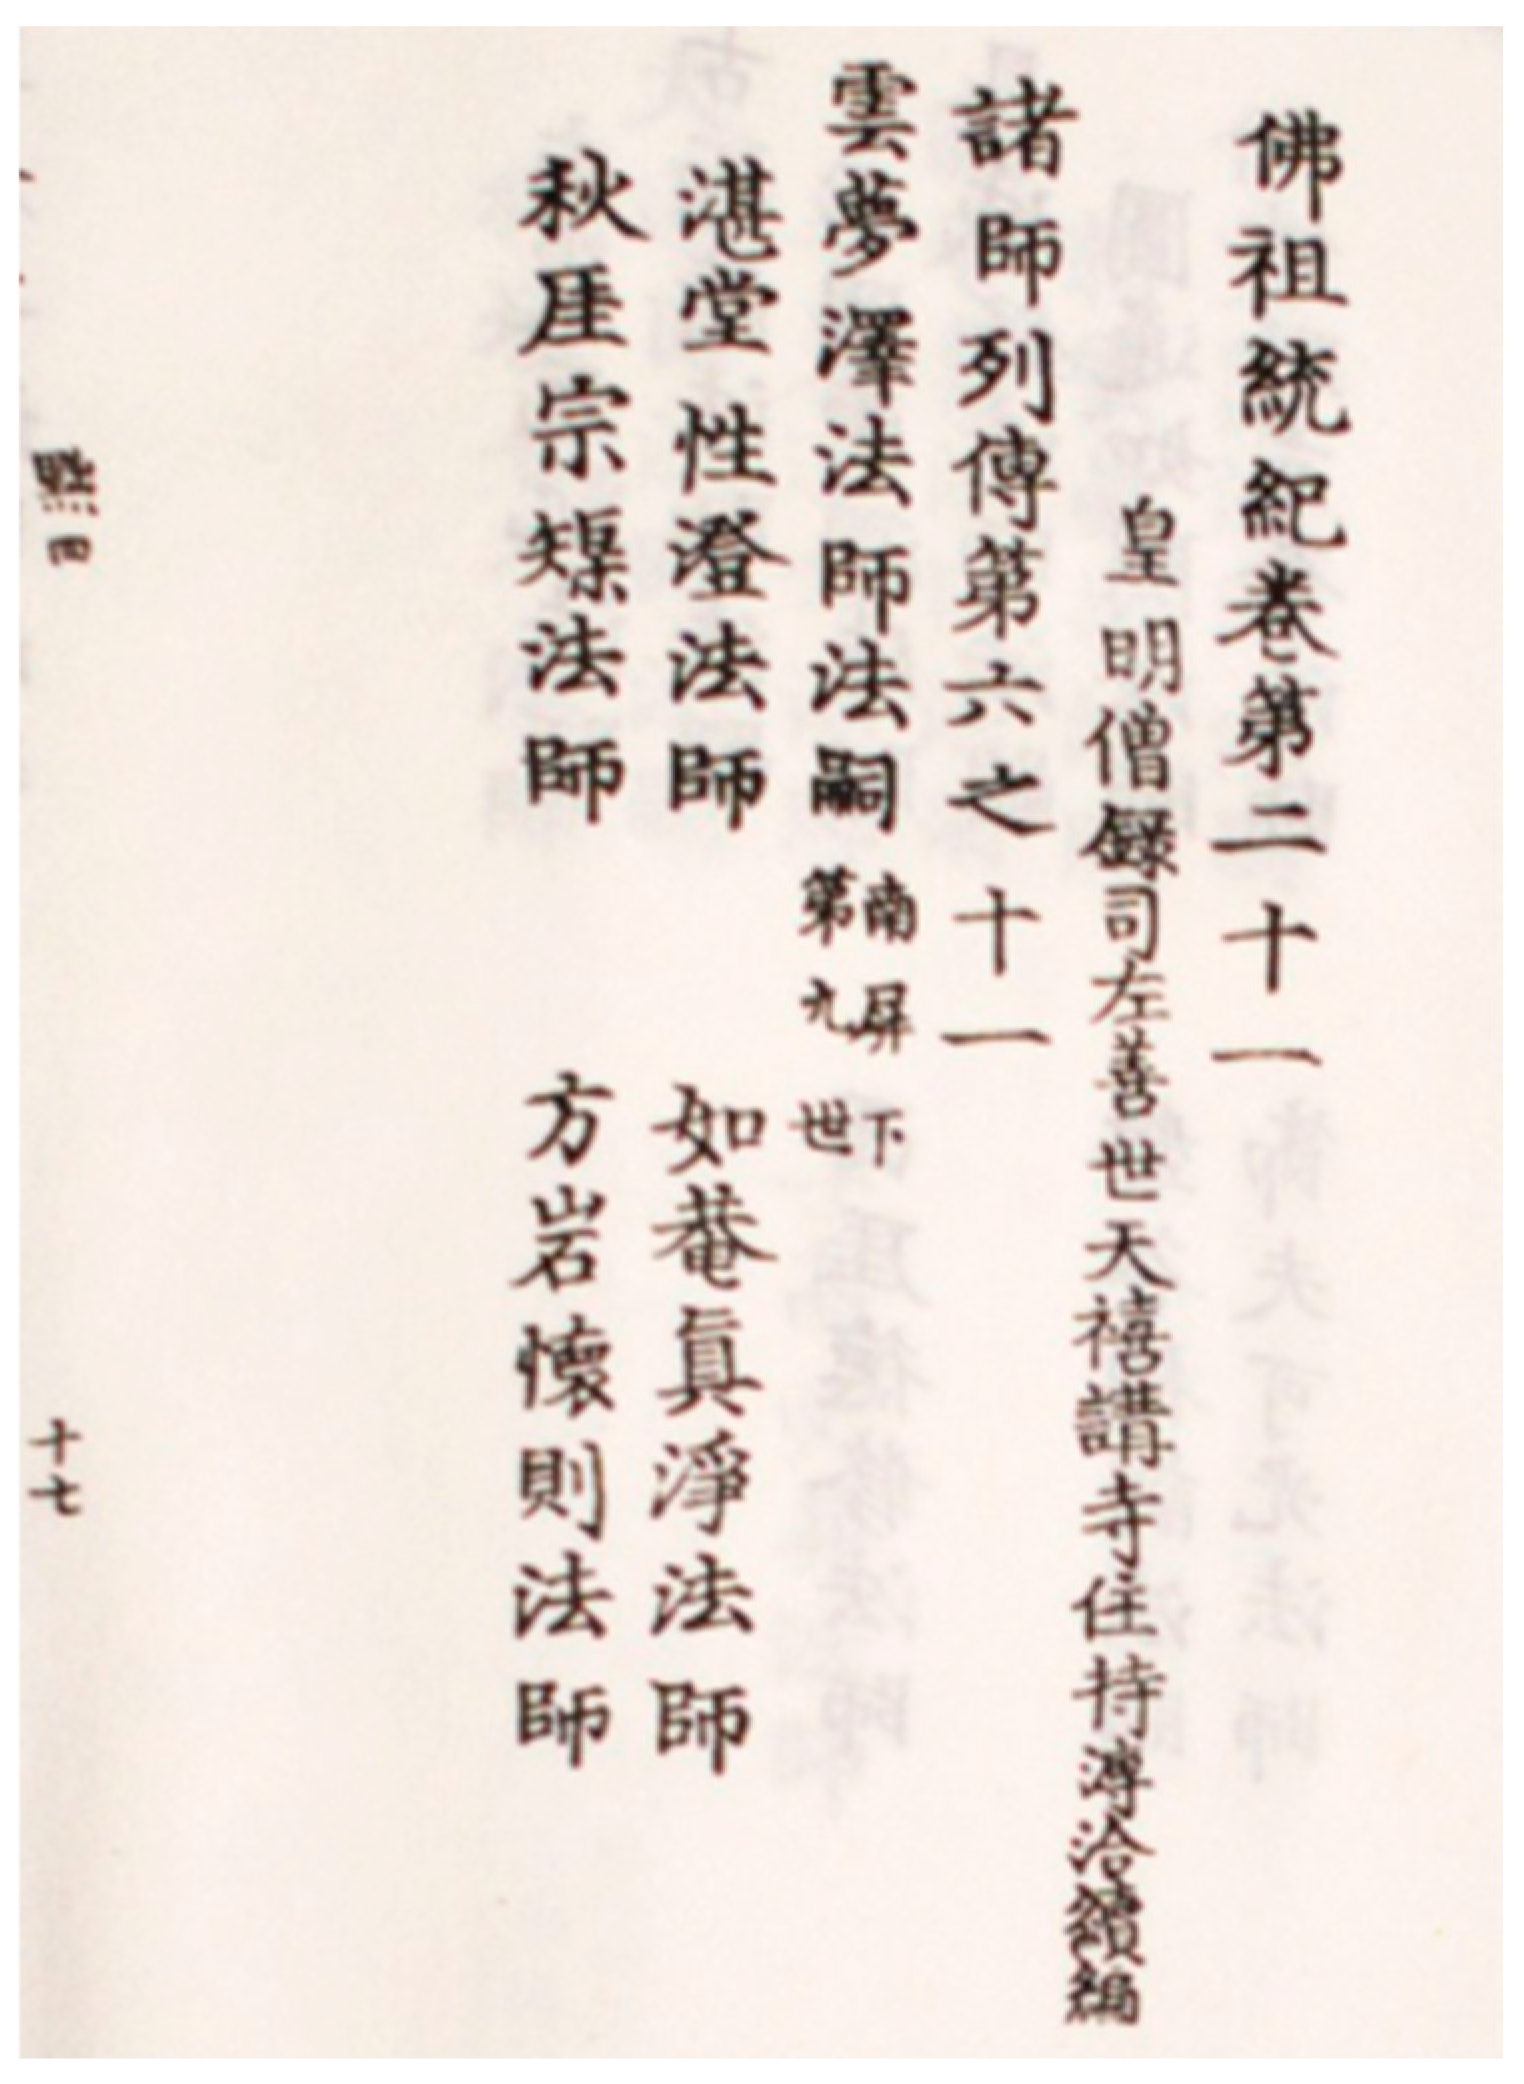 佛祖統紀卷第二十一
皇明僧錄司左善世天禧講寺住持溥洽續編
諸師列傳第六之十一
雲夢澤法師法嗣
南屏下
第九世
湛堂性澄法師　如菴眞淨法師
秋厓宗榘法師　方岩懷則法師
十七